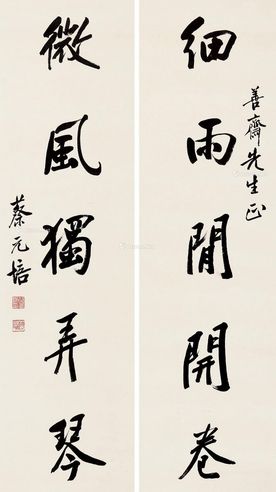 善齋先生正
細雨閒開卷
微風獨弄琴
蔡元培